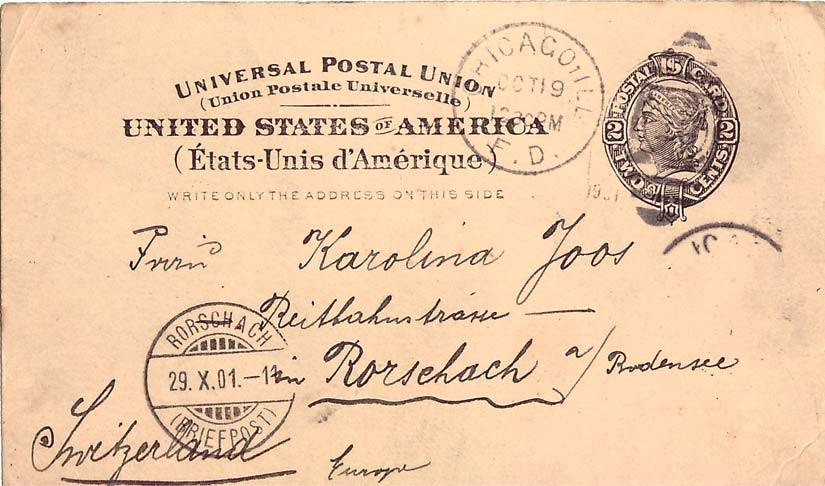 UNIVERSAL POSTAL UNION
(Union Postale Universelle)
UNITED STATES OF AMERICA
(États-Unis d'Amérique)
WRITE ONLY THE ADDRESS ON THIS SIDE
CHICAGO, ILL
OCT 19
PM
F. D.
1901
POSTAL CARD
U S
2 2
CENTS
Karolina Joos
Reitbahnstrasse —
in Rorschach a/ Bodensee
Switzerland
Europe
RORSCHACH
29. X. 01. –
(BRIEFPOST)